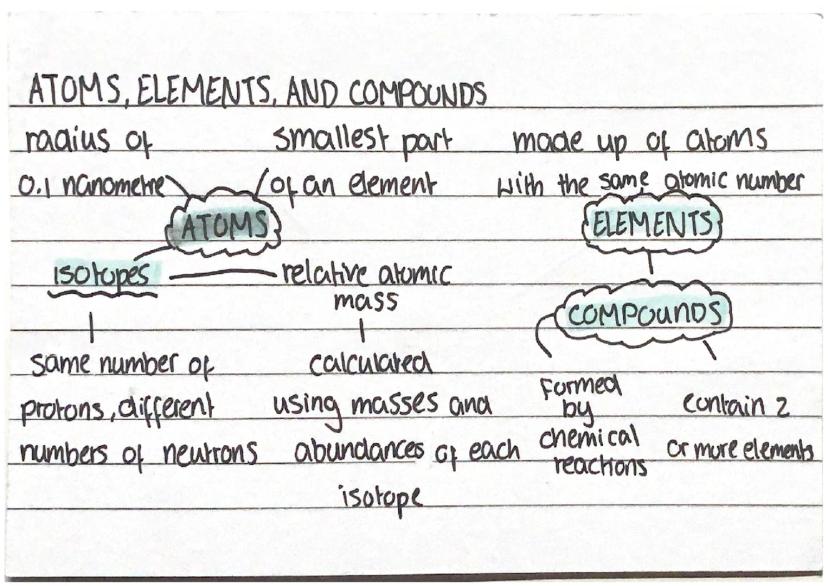 ATOMS, ELEMENTS, AND COMPOUNDS
radius of
0.1 nanometre
smallest part
of an element
ATOMS
isotopes
relative atomic
mass
same number of
protons, different
numbers of neutrons
calculated
using masses and
abundances of each
isotope
made up of atoms
with the same atomic number
ELEMENTS
COMPOUNDS
formed
by
chemical
reactions
contain 2
or more elements